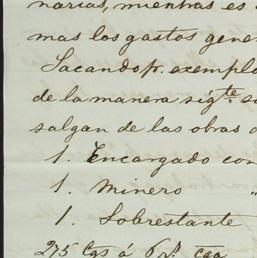 narias, mientras es
mas los gastos gene
Sacando pr. exemplo
de la manera sigte. s
salgan de las obras d
1. Encargado con
1. Minero "
1. Sobrestante
275 Cgs á 6 rs. caa